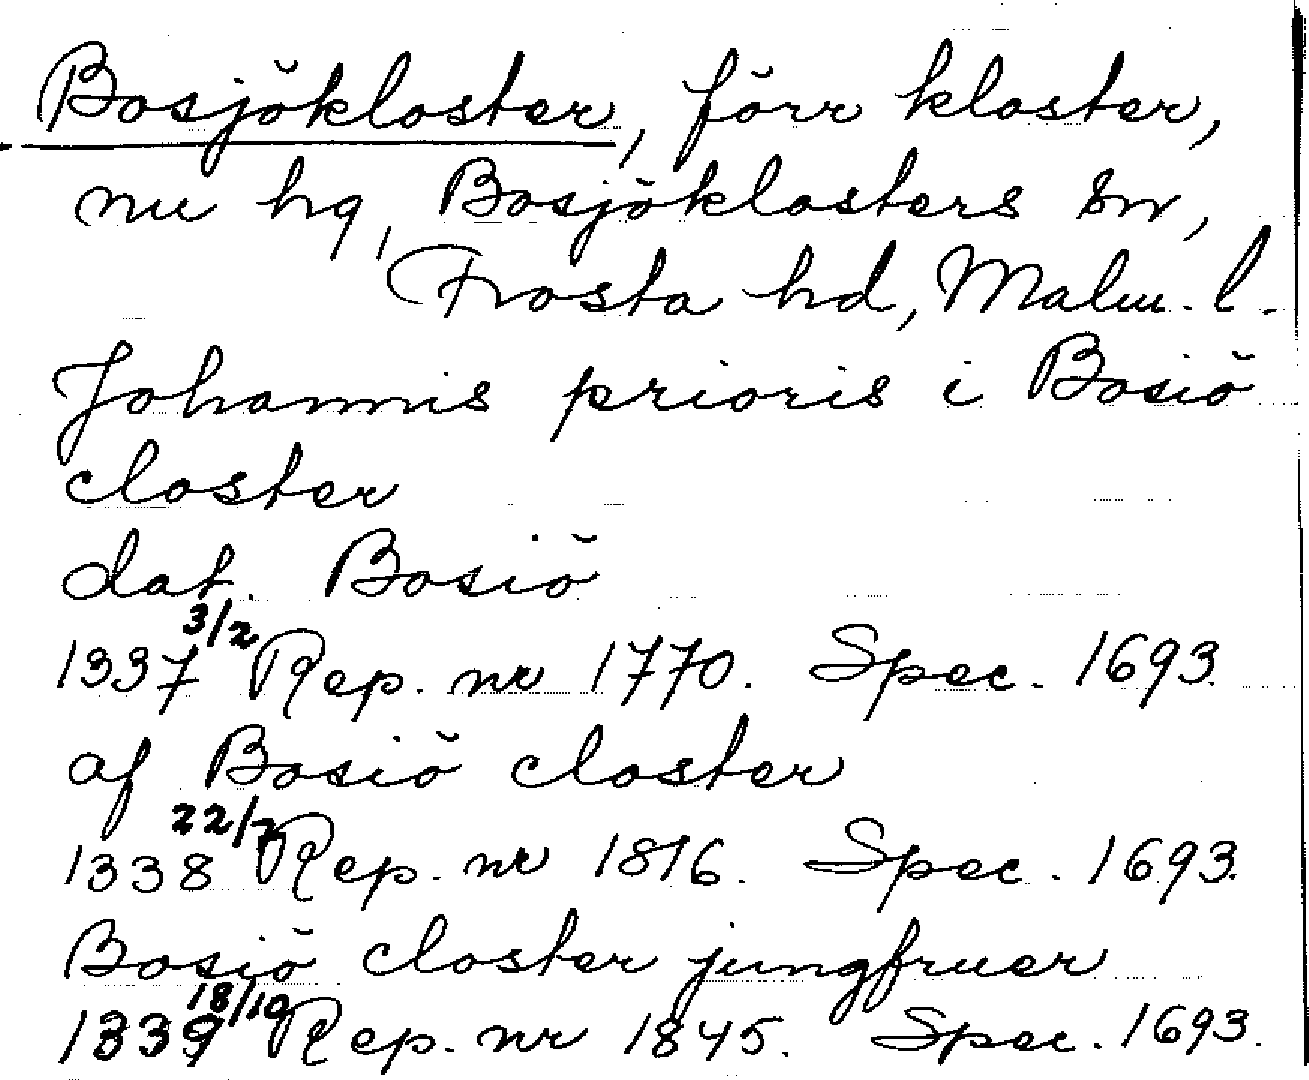 Bosjökloster, förr kloster,
nu hg, Bosjöklosters sn,
Frosta hd, Malm. l.
Johannis prioris i Bosiö
closter
dat. Bosiö
1337 3/2 Rep. nr 1770. Spec. 1693.
af Bosiö closter
1338 22/7 Rep. nr 1816. Spec. 1693.
Bosiö closter jungfruer
1339 18/10 Rep. nr 1845. Spec. 1693.